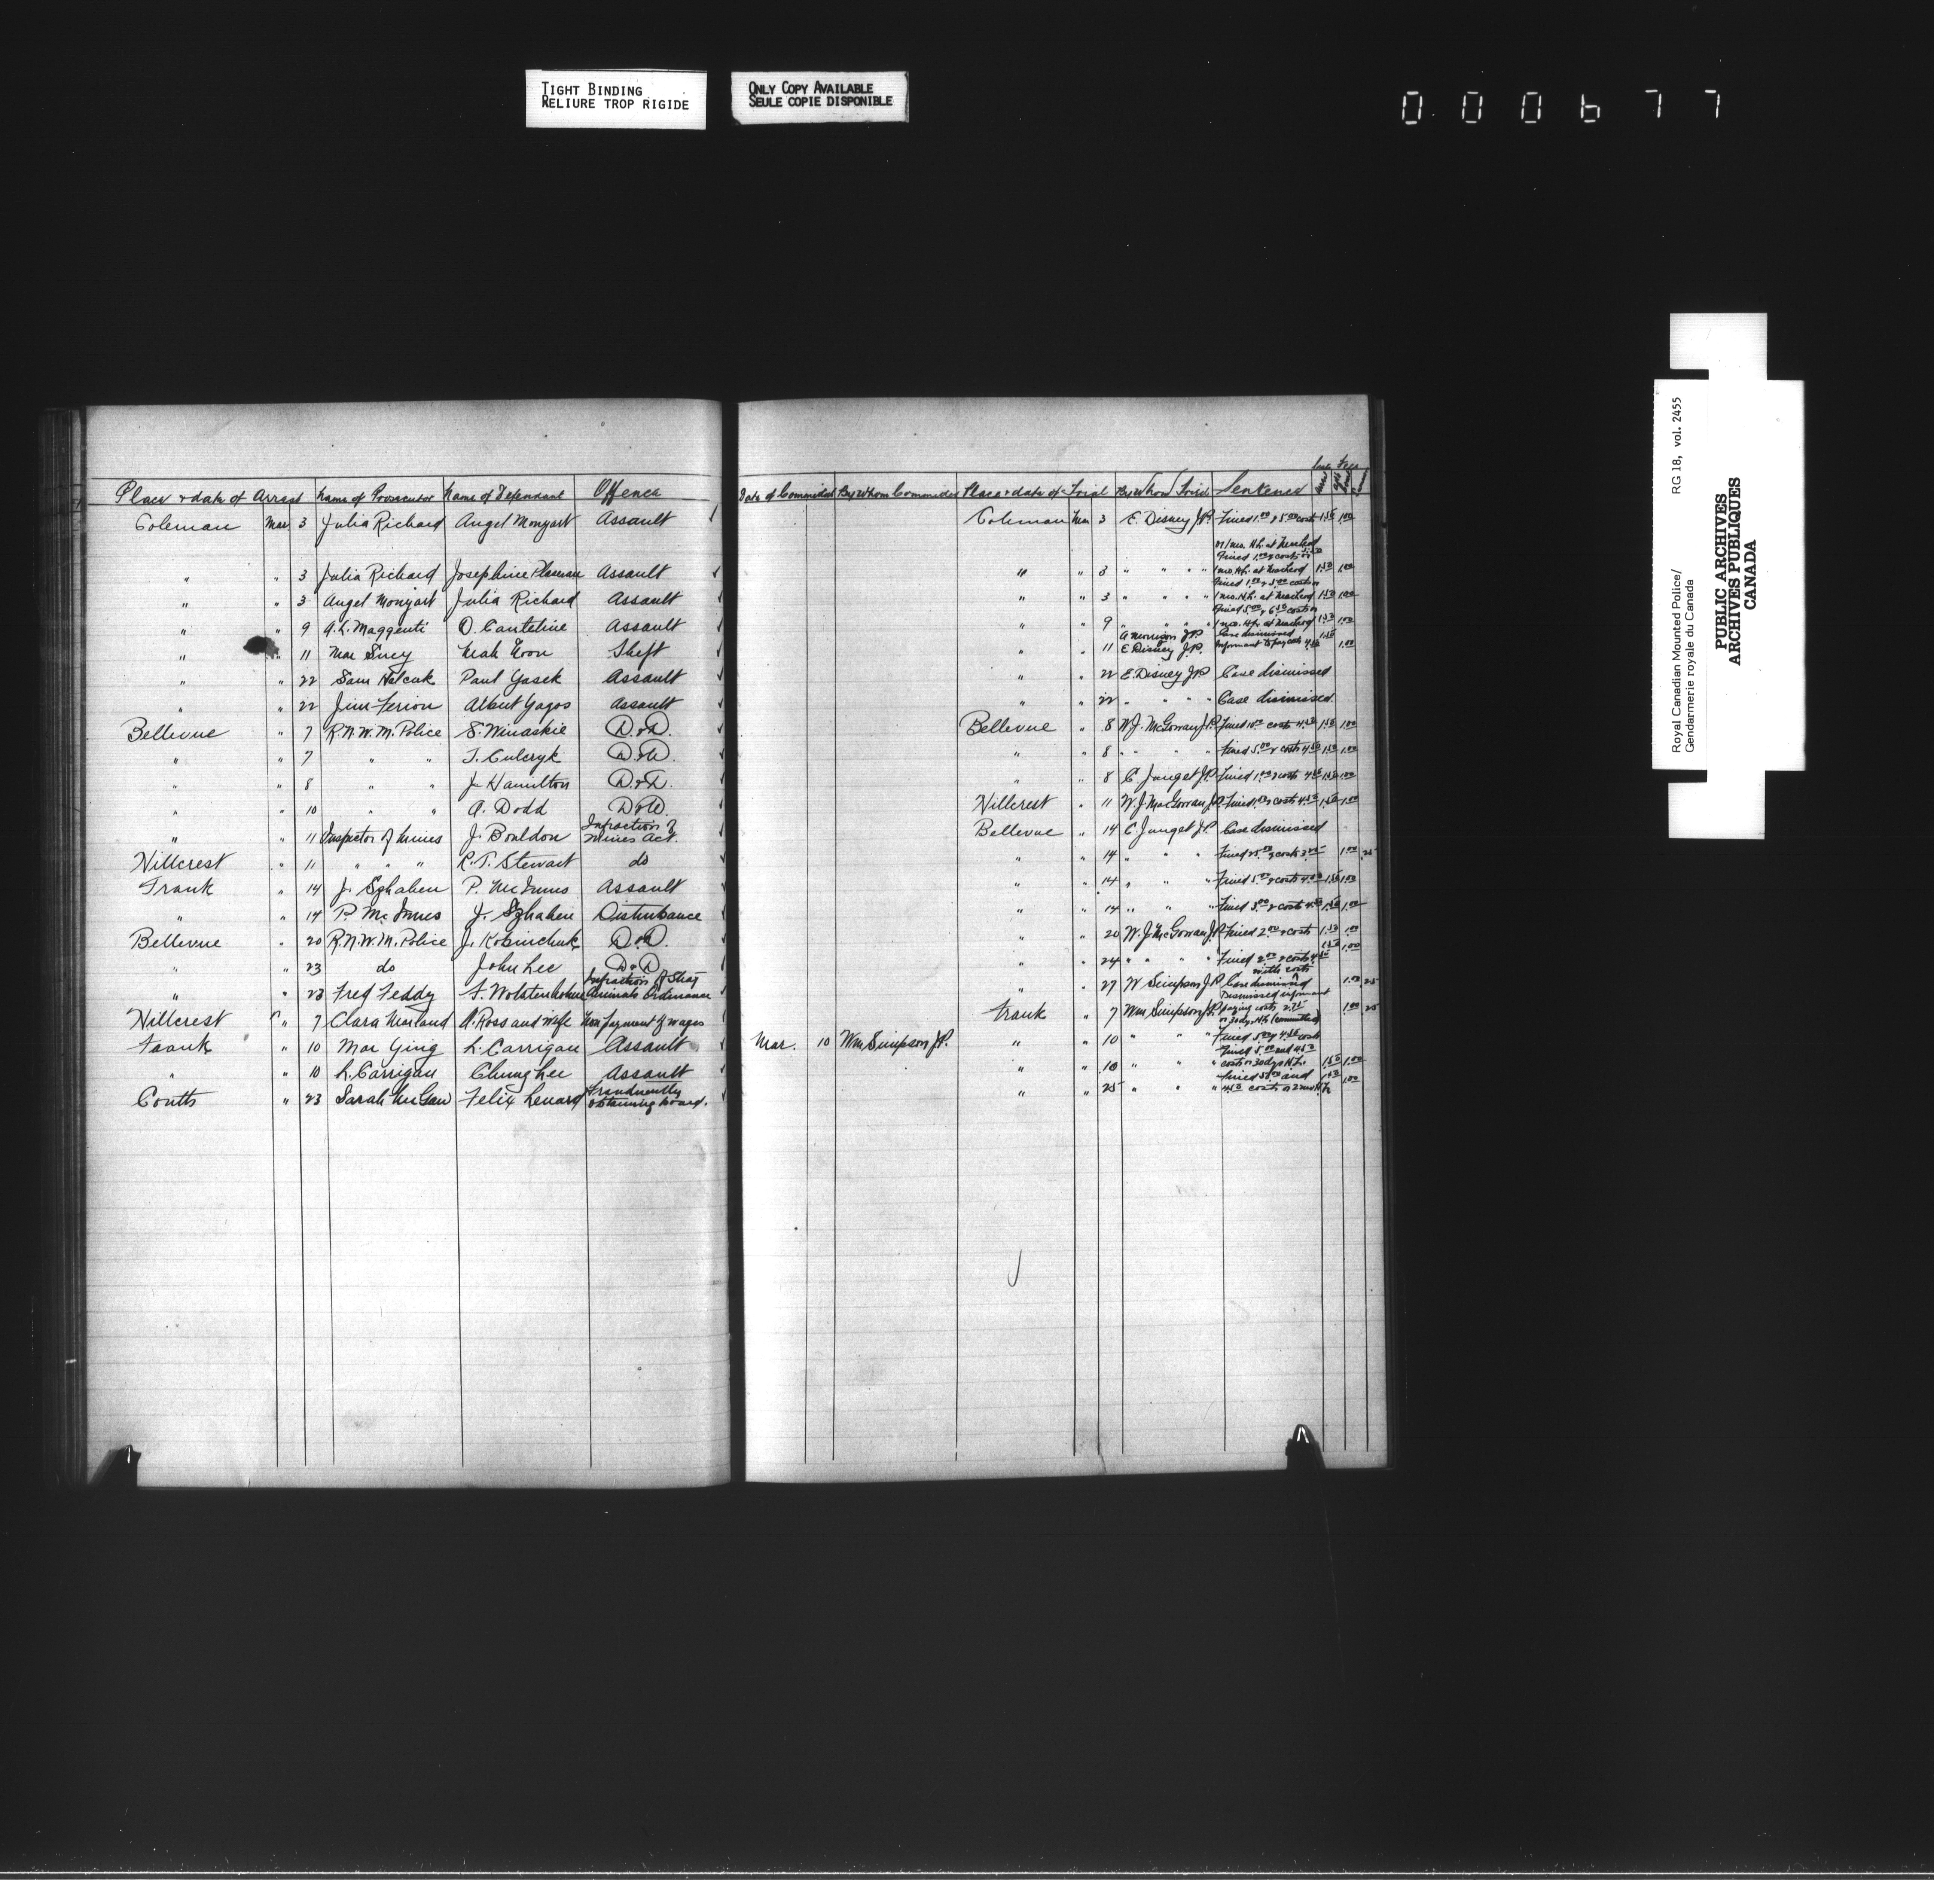 TIGHT BINDING
RELIURE TROP RIGIDE
ONLY COPY AVAILABLE
SEULE COPIE DISPONIBLE
000677
Place & date of Arrest Name of Prosecutor Name of Defendant Offence
Coleman Mar 3 Julia Richard Angel Monyart Assault
" " 3 Julia Richard Josephine Assault
" " 3 Angel Monyart Julia Richard Assault
" " 9 A.L. Maggenti O. Canteline Assault
" " 11 Mar Suey Mah Noon Theft
" " 22 Sam Halcuk Paul Yasek Assault
" " 22 Jim Ferion Albert Yagos Assault
Bellevue " 7 R.N.W.M. Police S. Winaskie D.&D.
" " 7 " " T. Culcryk D.&D.
" " 8 " " J. Hamilton D.&D.
" " 10 " " A. Dodd D&D.
" " 11 Inspector of Mines J. Bouldon Infraction of
Mines Act.
Hillcrest " 11 " " " R.T. Stewart do
Frank " 14 J. Szhaben P. McInnis Assault
" " 14 P. McInnes J. Szhaben Disturbance
Bellevue " 20 R.N.W.M. Police J. Kobinchuk D&D.
" " 23 do John Lee D&D
" " 23 Fred Feddy F. Wolstenholme Infraction of Stray
Animals Ordinance
Hillcrest " 7 Clara Marland A. Ross and Wife Non payment of wages
Frank " 10 Mar Ying L. Carrigan Assault
" " 10 L. Carrigan Chung Lee Assault
Coutts " 23 Sarah McGaw Felix Lenard Fraudulently
obtaining board.
Date of Commided By Whom Commided Place & date of Trial By Whom Tried Sentence
Fees
Coleman Mar 3 E. Disney J.P. Fined 1.00 & 5.00 costs 1.50 1.00
or 1 mo. H.L. at Macleod
Fined 1.00 & costs or
" " 3 " " " " 1 mo. H.L. at Macleod 1.50 1.00
Fined 1.00 & 5.00 costs or
" " 3 " " " 1 mo. H.L. at Macleod 1.50 1.00
Fined 5.00 & 6.50 costs or
" " 9 " " " 1 mo. H.L. at Macleod 1.50 1.00
A Morrison J.P. Case dismissed 1.50
" " 11 E Disney J.P. Informant to pay costs 4.50 1.00
" " 22 E. Disney J.P. Case dismissed
" " 22 " " " Case dismissed.
Bellevue " 8 W.J. McGowan J.P. Fined 10.00 costs 4.50 1.50 1.00
" " 8 " " " Fined 5.00 & costs 4.50 1.50 1.00
" " 8 C. Jonget J.P. Fined 1.00 & costs 4.50 1.50 1.00
Hillcrest " 11 W.J. MacGowan J.P. Fined 1.00 & costs 4.50 1.50 1.00
Bellevue " 14 C. Jonget J.P. Case dismissed
" " 14 " " " Fined 25.00 & costs 3.00 1.00 .25
" " 14 " " " Fined 5.00 & costs 4.00 1.50 1.00
" " 14 " " " Fined 3.00 & costs 4.50 1.50 1.00
" " 20 W.J. McGowan J.P. Fined 2.00 & costs 1.50 1.00
" " 24 " " " Fined 2.00 & costs 4.50 1.50 1.00
with costs
" " 27 W Simpson J.P. Case dismissed 1.00 25
Dismissed informant
Frank " 7 Wm Simpson J.P. paying costs 2.75 1.00 25
or 30 dys H.L. (committed)
Mar. 10 Wm Simpson J.P. " " 10 " " " Fined 5.00 & 4.50 costs
Fined 5.00 and 4.50
" " 10 " " " costs or 30 dys H.L. 1.50 1.00
Fined 50.00 and 1.50
" " 25 " " " 4.50 costs or 2 mos H.L. 1.00
Royal Canadian Mounted Police/ RG 18, vol. 2455
Gendarmerie royale du Canada
PUBLIC ARCHIVES
ARCHIVES PUBLIQUES
CANADA